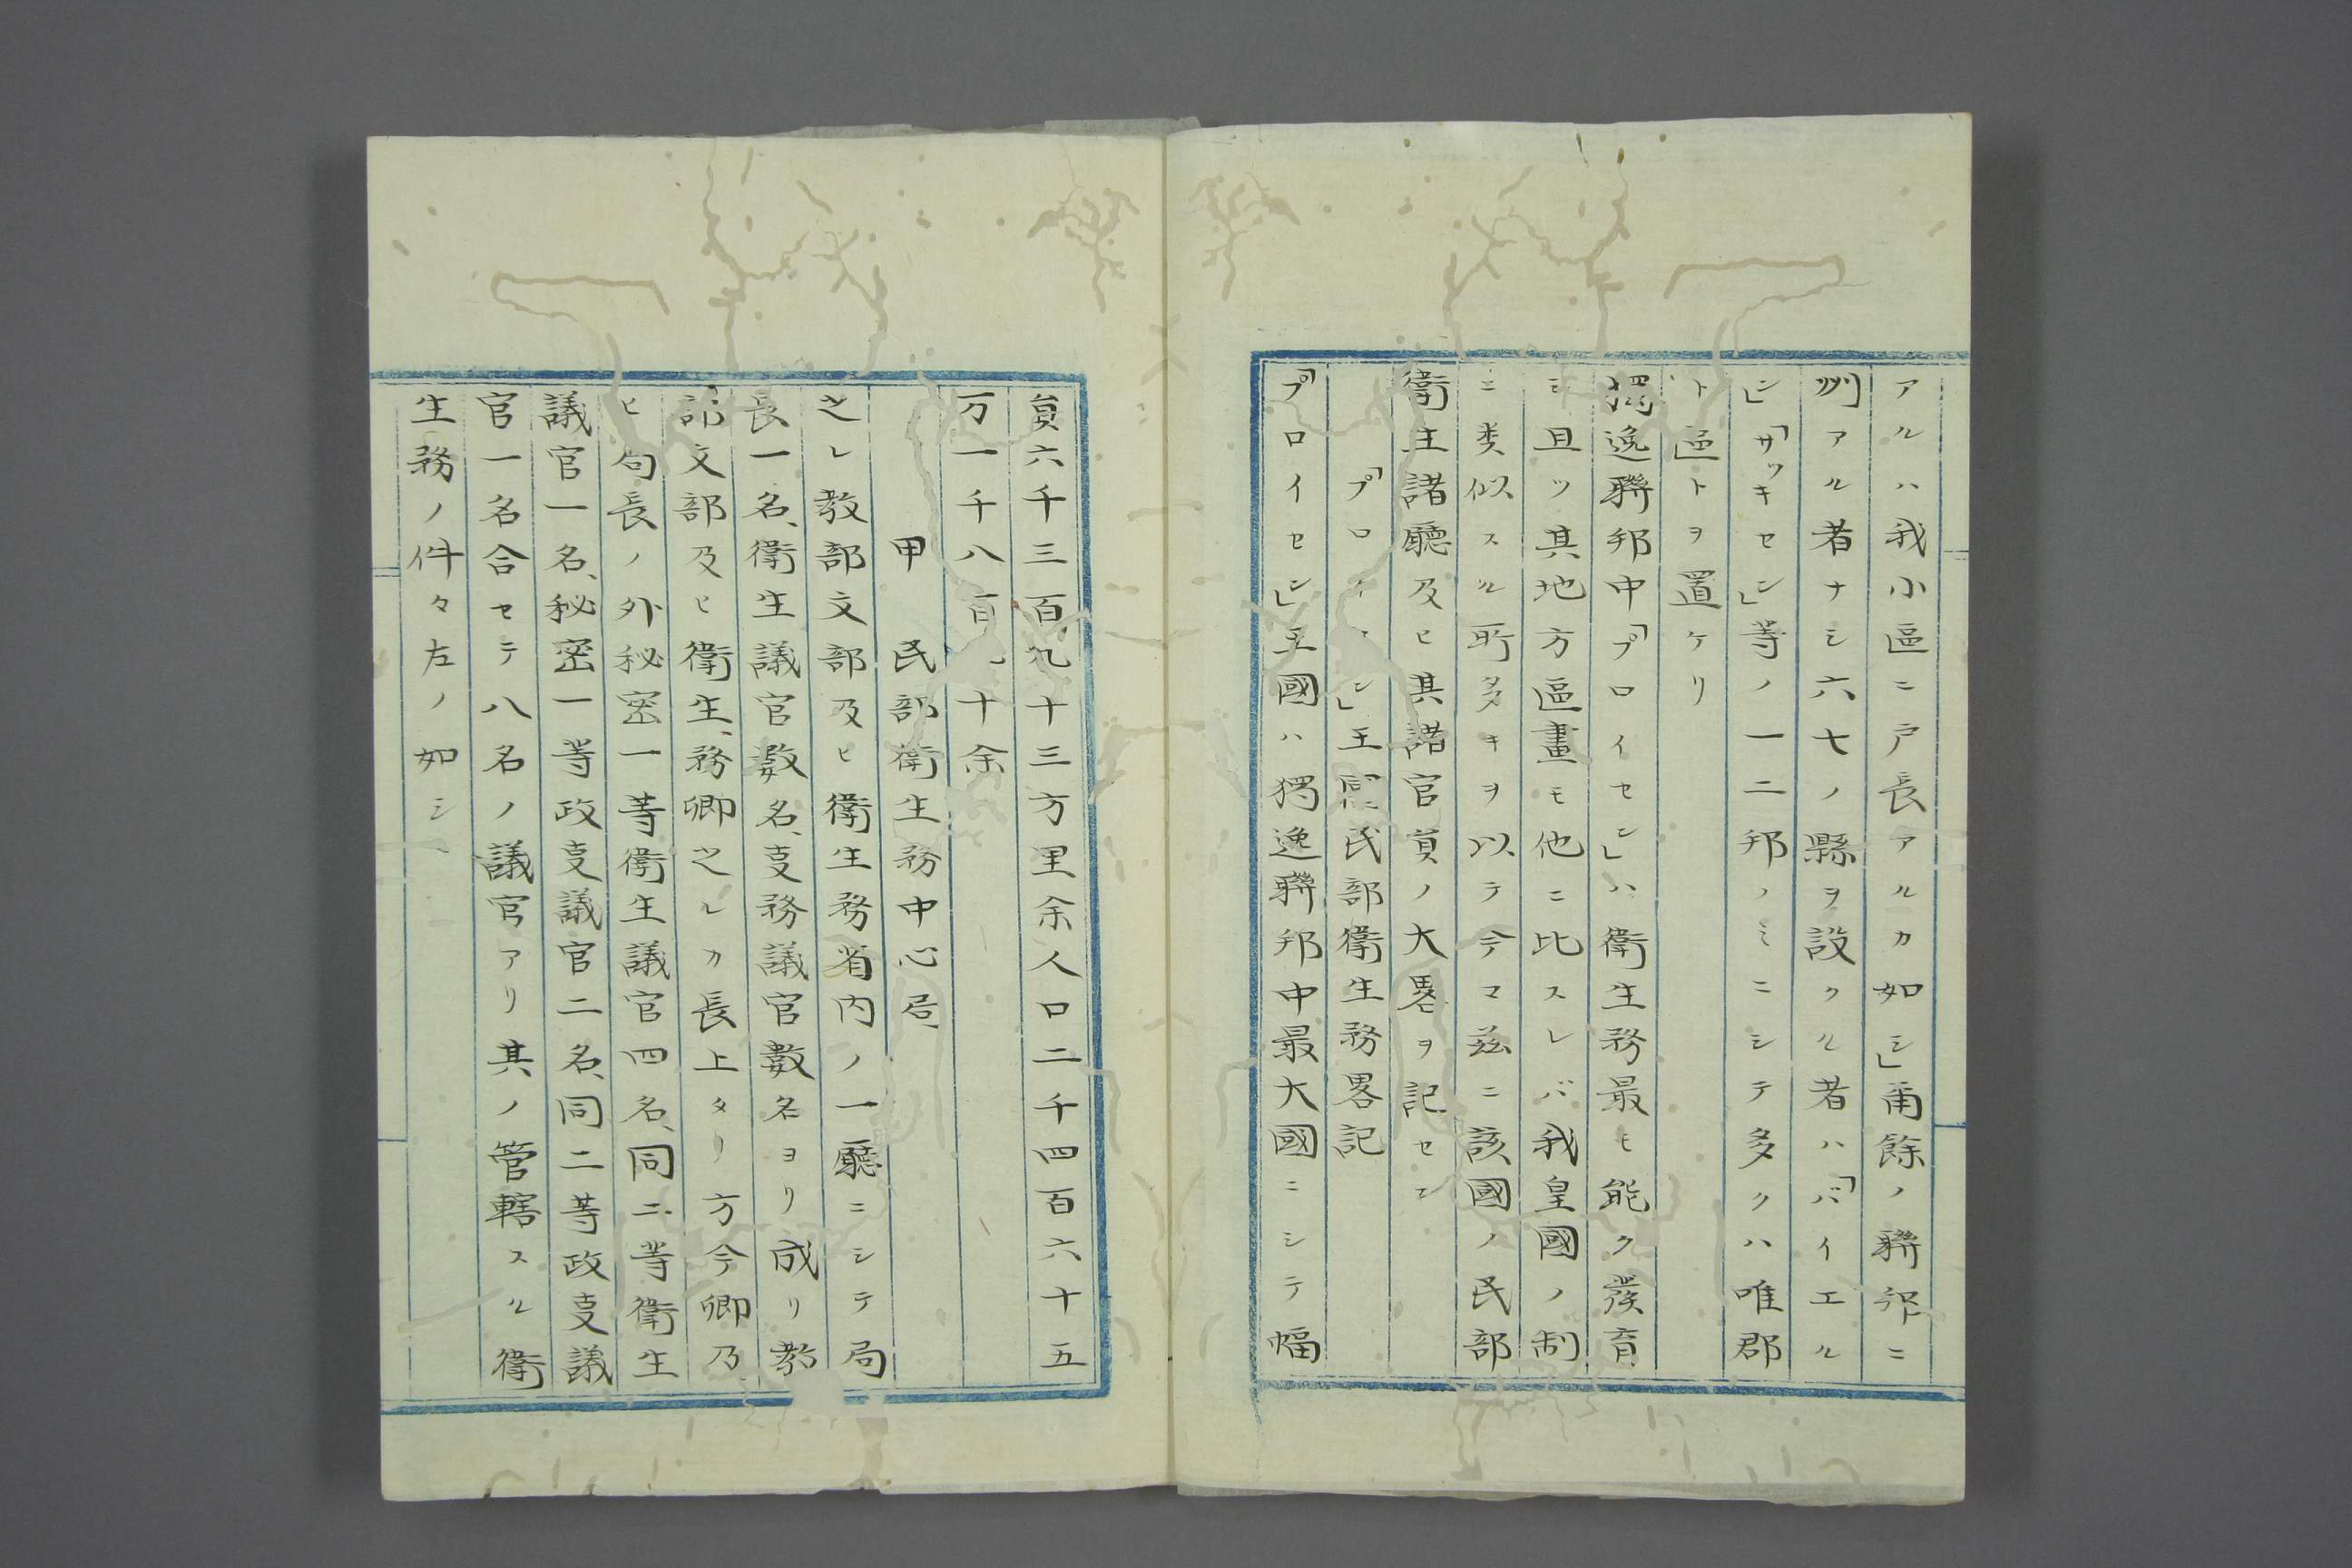 アルハ我小區ニ戸長アルカ如シ」甭餘ノ聯邦ニ
州アル者ナシ六七ノ縣ヲ設クル者ハ「バイエル
ン」「サツキセン」等ノ一二邦ノミニシテ多クハ唯郡
ト區トヲ置ケリ
獨逸聯邦中「プロイセン」ハ衛生務最モ能ク發育
シ且ツ其地方區畫モ他ニ比スレバ我皇國ノ制
ニ类似スル所多キヲ以テ今マ茲ニ該國ノ民部
衛生諸廳及ヒ其諸官員ノ大畧ヲ記セン
「プロイセン」王國民部衛生務畧記
「プロイセン」王國ハ獨逸聯邦中最大國ニシテ幅
員六千三百九十三方里余人口二千四百六十五
万一千八百十余
甲 民部衛生務中心局
之レ教部文部及ヒ衛生務省内ノ一廳ニシテ局
長一名、衛生議官數名、支務議官數名ヨリ成リ教
部文部及ヒ衛生務卿之レカ長上タリ方今卿乃
ヒ局長ノ外秘密一等衛生議官四名、同二等衛生
議官一名、秘密一等政支議官二名、同二等政支議
官一名合セテ八名ノ議官アリ其ノ管轄スル衛
生務ノ件々左ノ如シ